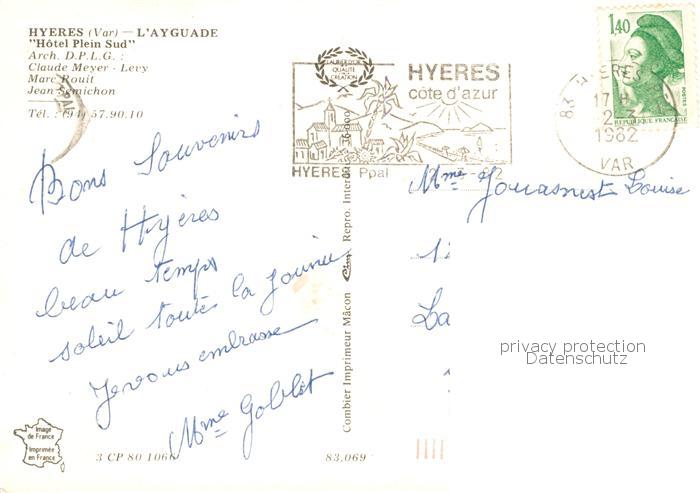 HYERES (Var) — L'AYGUADE
"Hôtel Plein Sud"
Arch. D.P.L.G. :
Claude Meyer - Levy
Marc Rouit
Jean Semichon
Tél. : (94) 57.90.10
Bons Souvenirs
de Hyères
beau temps
soleil toute la journée
Je vous embrasse
Mme Goblet
Image
de France
Imprimée
en France
3 CP 80 106
83.069
Combier Imprimeur Mâcon Cim Repro.
LAURIER D'OR
QUALITÉ
CRÉATION
HYERES
côte d'azur
HYERES Ppal
83 HYERES
17 H
1982
VAR
1,40
POSTES
REPUBLIQUE FRANÇAISE
Mme Louise
La
privacy protection
Datenschutz